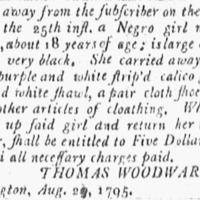 away from the ſubſcriber on the
the 25th inſt. a Negro girl n
, about 18 years of age; is large
very black. She carried away
purple and white ſtrip'd calico g
d white ſhawl, a pair cloth ſhoe
other articles of cloathing. Wh
up ſaid girl and return her
r, ſhall be entitled to Five Dolla
all neceſſary charges paid.
THOMAS WOODWAR
gton, Aug. 29, 1795.